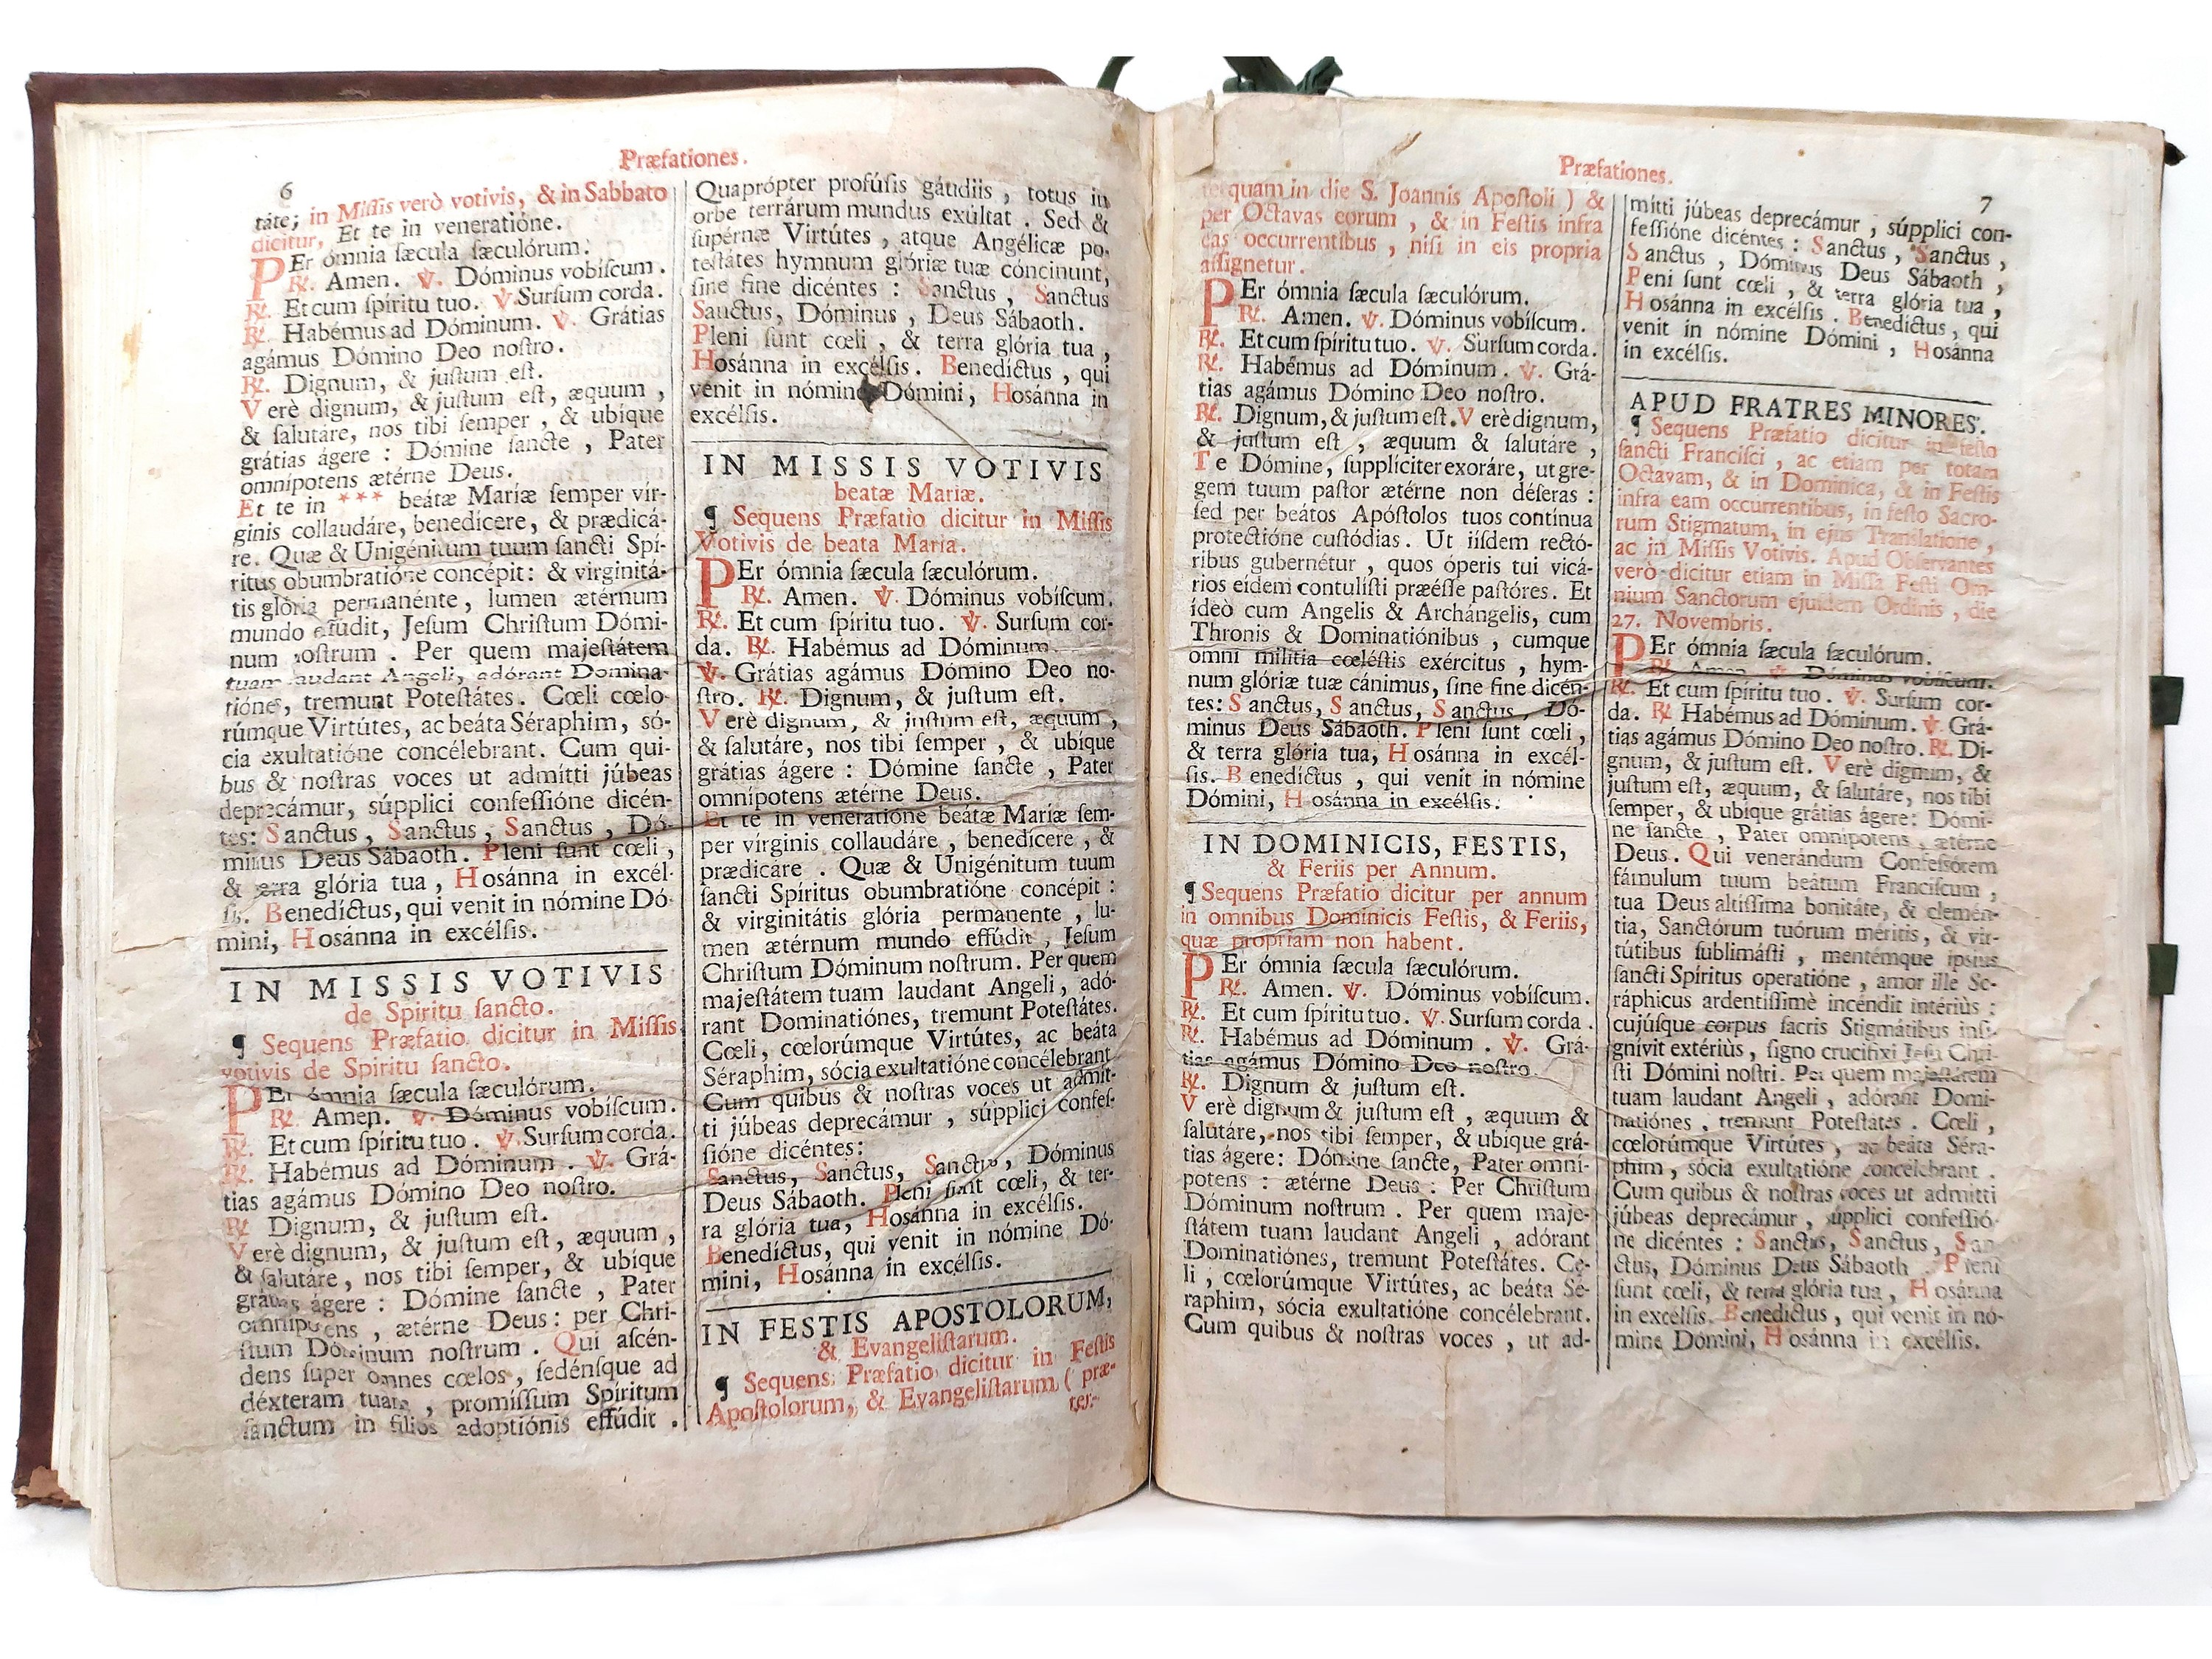 Præfationes.
6
táte; in Miſſis verò votivis, & in Sabbato
dicitur, Et te in veneratióne.
PEr ómnia ſæcula ſæculórum.
℟. Amen. ℣. Dóminus vobiſcum.
℟. Et cum ſpíritu tuo. ℣. Surſum corda.
℟. Habémus ad Dóminum. ℣. Grátias
agámus Dómino Deo noſtro.
℟. Dignum, & juſtum eſt.
Verè dignum, & juſtum eſt, æquum,
& ſalutáre, nos tibi ſemper, & ubíque
grátias ágere: Dómine ſancte, Pater
omnípotens ætérne Deus.
Et te in *** beátæ Maríæ ſemper vír-
ginis collaudáre, benedícere, & prædicá-
re. Quæ & Unigénitum tuum ſancti Spí-
ritus obumbratióne concépit: & virginitá-
tis glória permanénte, lumen ætérnum
mundo effudit, Jeſum Chriſtum Dómi-
num noſtrum. Per quem majeſtátem
tuam laudant Angeli, adórant Domina-
tiónes, tremunt Poteſtátes. Cœli cœlo-
rúmque Virtútes, ac beáta Séraphim, só-
cia exultatióne concélebrant. Cum qui-
bus & noſtras voces ut admítti júbeas
deprecámur, súpplici confeſſióne dicén-
tes: Sanctus, Sanctus, Sanctus, Dó-
minus Deus Sábaoth. Pleni ſunt cœli,
& terra glória tua, Hosánna in excél-
ſis. Benedíctus, qui venit in nómine Dó-
mini, Hosánna in excélſis.
IN MISSIS VOTIVIS
de Spiritu ſancto.
¶ Sequens Præfatio dicitur in Miſſis
votivis de Spiritu ſancto.
PEr ómnia ſæcula ſæculórum.
℟. Amen. ℣. Dóminus vobiſcum.
℟. Et cum ſpíritu tuo. ℣. Surſum corda.
℟. Habémus ad Dóminum. ℣. Grá-
tias agámus Dómino Deo noſtro.
℟. Dignum, & juſtum eſt.
Verè dignum, & juſtum eſt, æquum,
& ſalutáre, nos tibi ſemper, & ubíque
grátias ágere: Dómine ſancte, Pater
omnípotens, ætérne Deus: per Chri-
ſtum Dóminum noſtrum. Qui aſcén-
dens ſuper omnes cœlos, ſedénſque ad
déxteram tuam, promíſſum Spíritum
ſanctum in filios adoptiónis effúdit.
Quaprópter profúſis gáudiis, totus in
orbe terrárum mundus exúltat. Sed &
ſupérnæ Virtútes, atque Angélicæ po-
teſtátes hymnum glóriæ tuæ cóncinunt,
ſine fine dicéntes: Sanctus, Sanctus
Sanctus, Dóminus, Deus Sábaoth.
Pleni ſunt cœli, & terra glória tua,
Hosánna in excélſis. Benedíctus, qui
venit in nómine Dómini, Hosánna in
excélſis.
IN MISSIS VOTIVIS
beatæ Mariæ.
¶ Sequens Præfatio dicitur in Miſſis
Votivis de beata Maria.
PEr ómnia ſæcula ſæculórum.
℟. Amen. ℣. Dóminus vobíſcum.
℟. Et cum ſpíritu tuo. ℣. Surſum cor-
da. ℟. Habémus ad Dóminum.
℣. Grátias agámus Dómino Deo no-
ſtro. ℟. Dignum, & juſtum eſt.
Verè dignum, & juſtum eſt, æquum,
& ſalutáre, nos tibi ſemper, & ubíque
grátias ágere: Dómine ſancte, Pater
omnípotens ætérne Deus.
Et te in veneratióne beátæ Maríæ ſem-
per vírginis collaudáre, benedícere, &
prædicáre. Quæ & Unigénitum tuum
ſancti Spíritus obumbratióne concépit:
& virginitátis glória permanente, lu-
men ætérnum mundo effúdit, Jeſum
Chriſtum Dóminum noſtrum. Per quem
majeſtátem tuam laudant Angeli, adó-
rant Dominatiónes, tremunt Poteſtátes.
Cœli, cœlorúmque Virtútes, ac beáta
Séraphim, sócia exultatióne concélebrant
Cum quibus & noſtras voces ut admít-
ti júbeas deprecámur, súpplici confeſ-
ſióne dicéntes:
Sanctus, Sanctus, Sanctus, Dóminus
Deus Sábaoth. Pleni ſunt cœli, & ter-
ra glória tua, Hosánna in excélſis.
Benedíctus, qui venit in nómine Dó-
mini, Hosánna in excélſis.
IN FESTIS APOSTOLORUM,
& Evangeliſtarum.
¶ Sequens Præfatio dicitur in Feſtis
Apoſtolorum, & Evangeliſtarum (præ-
ter-
Præfationes.
7
terquam in die S. Joannis Apoſtoli) &
per Octavas eorum, & in Feſtis infra
eas occurrentibus, niſi in eis propria
aſſignetur.
PEr ómnia ſæcula ſæculórum.
℟. Amen. ℣. Dóminus vobíſcum.
℟. Et cum ſpíritu tuo. ℣. Surſum corda.
℟. Habémus ad Dóminum. ℣. Grá-
tias agámus Dómino Deo noſtro.
℟. Dignum, & juſtum eſt. Verè dignum,
& juſtum eſt, æquum & ſalutáre,
Te Dómine, ſupplíciter exoráre, ut gre-
gem tuum paſtor ætérne non déſeras:
ſed per beátos Apóſtolos tuos contínua
protectióne cuſtódias. Ut iíſdem rectó-
ribus gubernétur, quos óperis tui vicá-
rios eídem contulíſti præéſſe paſtóres. Et
ídeò cum Angelis & Archángelis, cum
Thronis & Dominatiónibus, cumque
omni milítia cœléſtis exércitus, hym-
num glóriæ tuæ cánimus, ſine fine dicén-
tes: Sanctus, Sanctus, Sanctus, Dó-
minus Deus Sábaoth. Pleni ſunt cœli,
& terra glória tua, Hosánna in excél-
ſis. Benedíctus, qui venit in nómine
Dómini, Hosánna in excélſis.
IN DOMINICIS, FESTIS,
& Feriis per Annum.
¶ Sequens Præfatio dicitur per annum
in omnibus Dominicis Feſtis, & Feriis,
quæ propriam non habent.
PEr ómnia ſæcula ſæculórum.
℟. Amen. ℣. Dóminus vobíſcum.
℟. Et cum ſpíritu tuo. ℣. Surſum corda.
℟. Habémus ad Dóminum. ℣. Grá-
tias agámus Dómino Deo noſtro.
℟. Dignum & juſtum eſt.
Verè dignum & juſtum eſt, æquum &
ſalutáre, nos tibi ſemper, & ubíque grá-
tias ágere: Dómine ſancte, Pater omní-
potens: ætérne Deus: Per Chriſtum
Dóminum noſtrum. Per quem maje-
ſtátem tuam laudant Angeli, adórant
Dominatiónes, tremunt Poteſtátes. Cœ-
li, cœlorúmque Virtútes, ac beáta Sé-
raphim, sócia exultatióne concélebrant.
Cum quibus & noſtras voces, ut ad-
mítti júbeas deprecámur, súpplici con-
feſſióne dicéntes: Sanctus, Sanctus,
Sanctus, Dóminus Deus Sábaoth,
Peni ſunt cœli, & terra glória tua,
Hosánna in excélſis. Benedíctus, qui
venit in nómine Dómini, Hosánna
in excélſis.
APUD FRATRES MINORES.
¶ Sequens Præfatio dicitur in feſto
ſancti Franciſci, ac etiam per totam
Octavam, & in Dominica, & in Feſtis
infra eam occurrentibus, in feſto Sacro-
rum Stigmatum, in ejus Translatione,
ac in Miſſis Votivis. Apud Obſervantes
verò dicitur etiam in Miſſa Feſti Om-
nium Sanctorum ejuſdem Ordinis, die
27. Novembris.
PEr ómnia ſæcula ſæculórum.
℟. Amen. ℣. Dóminus vobíſcum.
℟. Et cum ſpíritu tuo. ℣. Surſum cor-
da. ℟. Habémus ad Dóminum. ℣. Grá-
tias agámus Dómino Deo noſtro. ℟. Di-
gnum, & juſtum eſt. Verè dignum, &
juſtum eſt, æquum, & ſalutáre, nos tibi
ſemper, & ubíque grátias ágere: Dómi-
ne ſancte, Pater omnípotens, ætérne
Deus. Qui venerándum Confeſſórem
fámulum tuum beátum Francíſcum,
tua Deus altíſſima bonitáte, & clemén-
tia, Sanctórum tuórum méritis, & vir-
tútibus ſublimáſti, mentémque ipsíus
ſancti Spíritus operatióne, amor ille Se-
ráphicus ardentíſſimè incéndit intériùs:
cujúſque corpus ſacris Stigmátibus inſi-
gnívit extériùs, ſigno crucifixi Jeſu Chri-
ſti Dómini noſtri. Per quem majeſtátem
tuam laudant Angeli, adórant Domi-
natiónes, tremunt Poteſtátes. Cœli,
cœlorúmque Virtútes, ac beáta Séra-
phim, sócia exultatióne concélebrant.
Cum quibus & noſtras voces ut admítti
júbeas deprecámur, súpplici confeſſió-
ne dicéntes: Sanctus, Sanctus, San-
ctus, Dóminus Deus Sábaoth. Pleni
ſunt cœli, & terra glória tua, Hosánna
in excélſis. Benedíctus, qui venit in nó-
mine Dómini, Hosánna in excélſis.